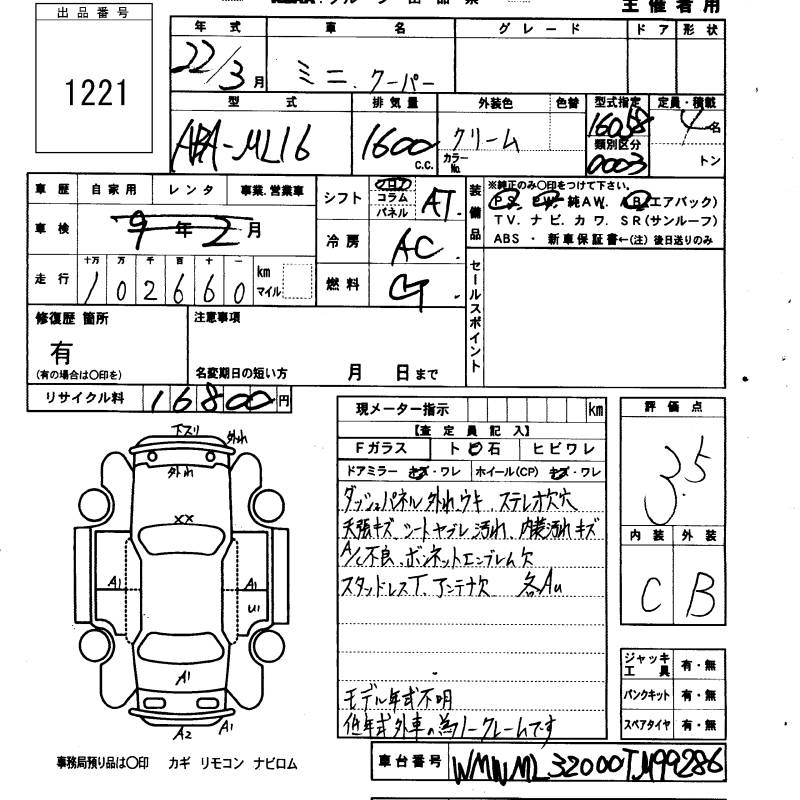 主催者用
出品番号
1221
年 式 車 名 グレード ドア 形状
22/3月 ミニ.クーパー
型 式 排気量 外装色 色替 型式指定 定員・積載
ABA-ML16 1600 c.c. クリーム カラーNo. 16058 4名
類別区分 0003 トン
車歴 自家用 レンタ 事業.営業車
車検 9年2月
走行 十万 万 千 百 十 一
102660 km マイル
シフト フロア コラム パネル AT.
冷房 AC
燃料 G
装備品 ※純正のみ〇印をつけて下さい。
PS. PW. 純AW. AB(エアバック)
TV. ナビ. カワ. SR(サンルーフ)
ABS ・ 新車保証書←(注) 後日送りのみ
セールスポイント
修復歴 箇所
有
(有の場合は〇印を)
注意事項
名変期日の短い方 月 日まで
リサイクル料 16800円
現メーター指示 km
【査定員記入】
Fガラス ト ビ 石 ヒビワレ
ドアミラー キズ・ワレ ホイール(CP) キズ・ワレ
ダッシュパネル外れ ウキ.ステレオ欠穴
天張キズ.シートヤブレ汚れ.内装汚れキズ
A/C不良.ボンネットエンブレム欠
スタッドレスT.アンテナ欠 各AU
モデル年式不明
低年式外車の為ノークレームです
評価点
3.5
内装 外装
C B
下スリ 外れ
外れ
XX
A1 A1
U1
A1
A2 A1
ジャッキ工具 有・無
パンクキット 有・無
スペアタイヤ 有・無
事務局預り品は〇印 カギ リモコン ナビロム
車台番号 WMWML32000TM99286